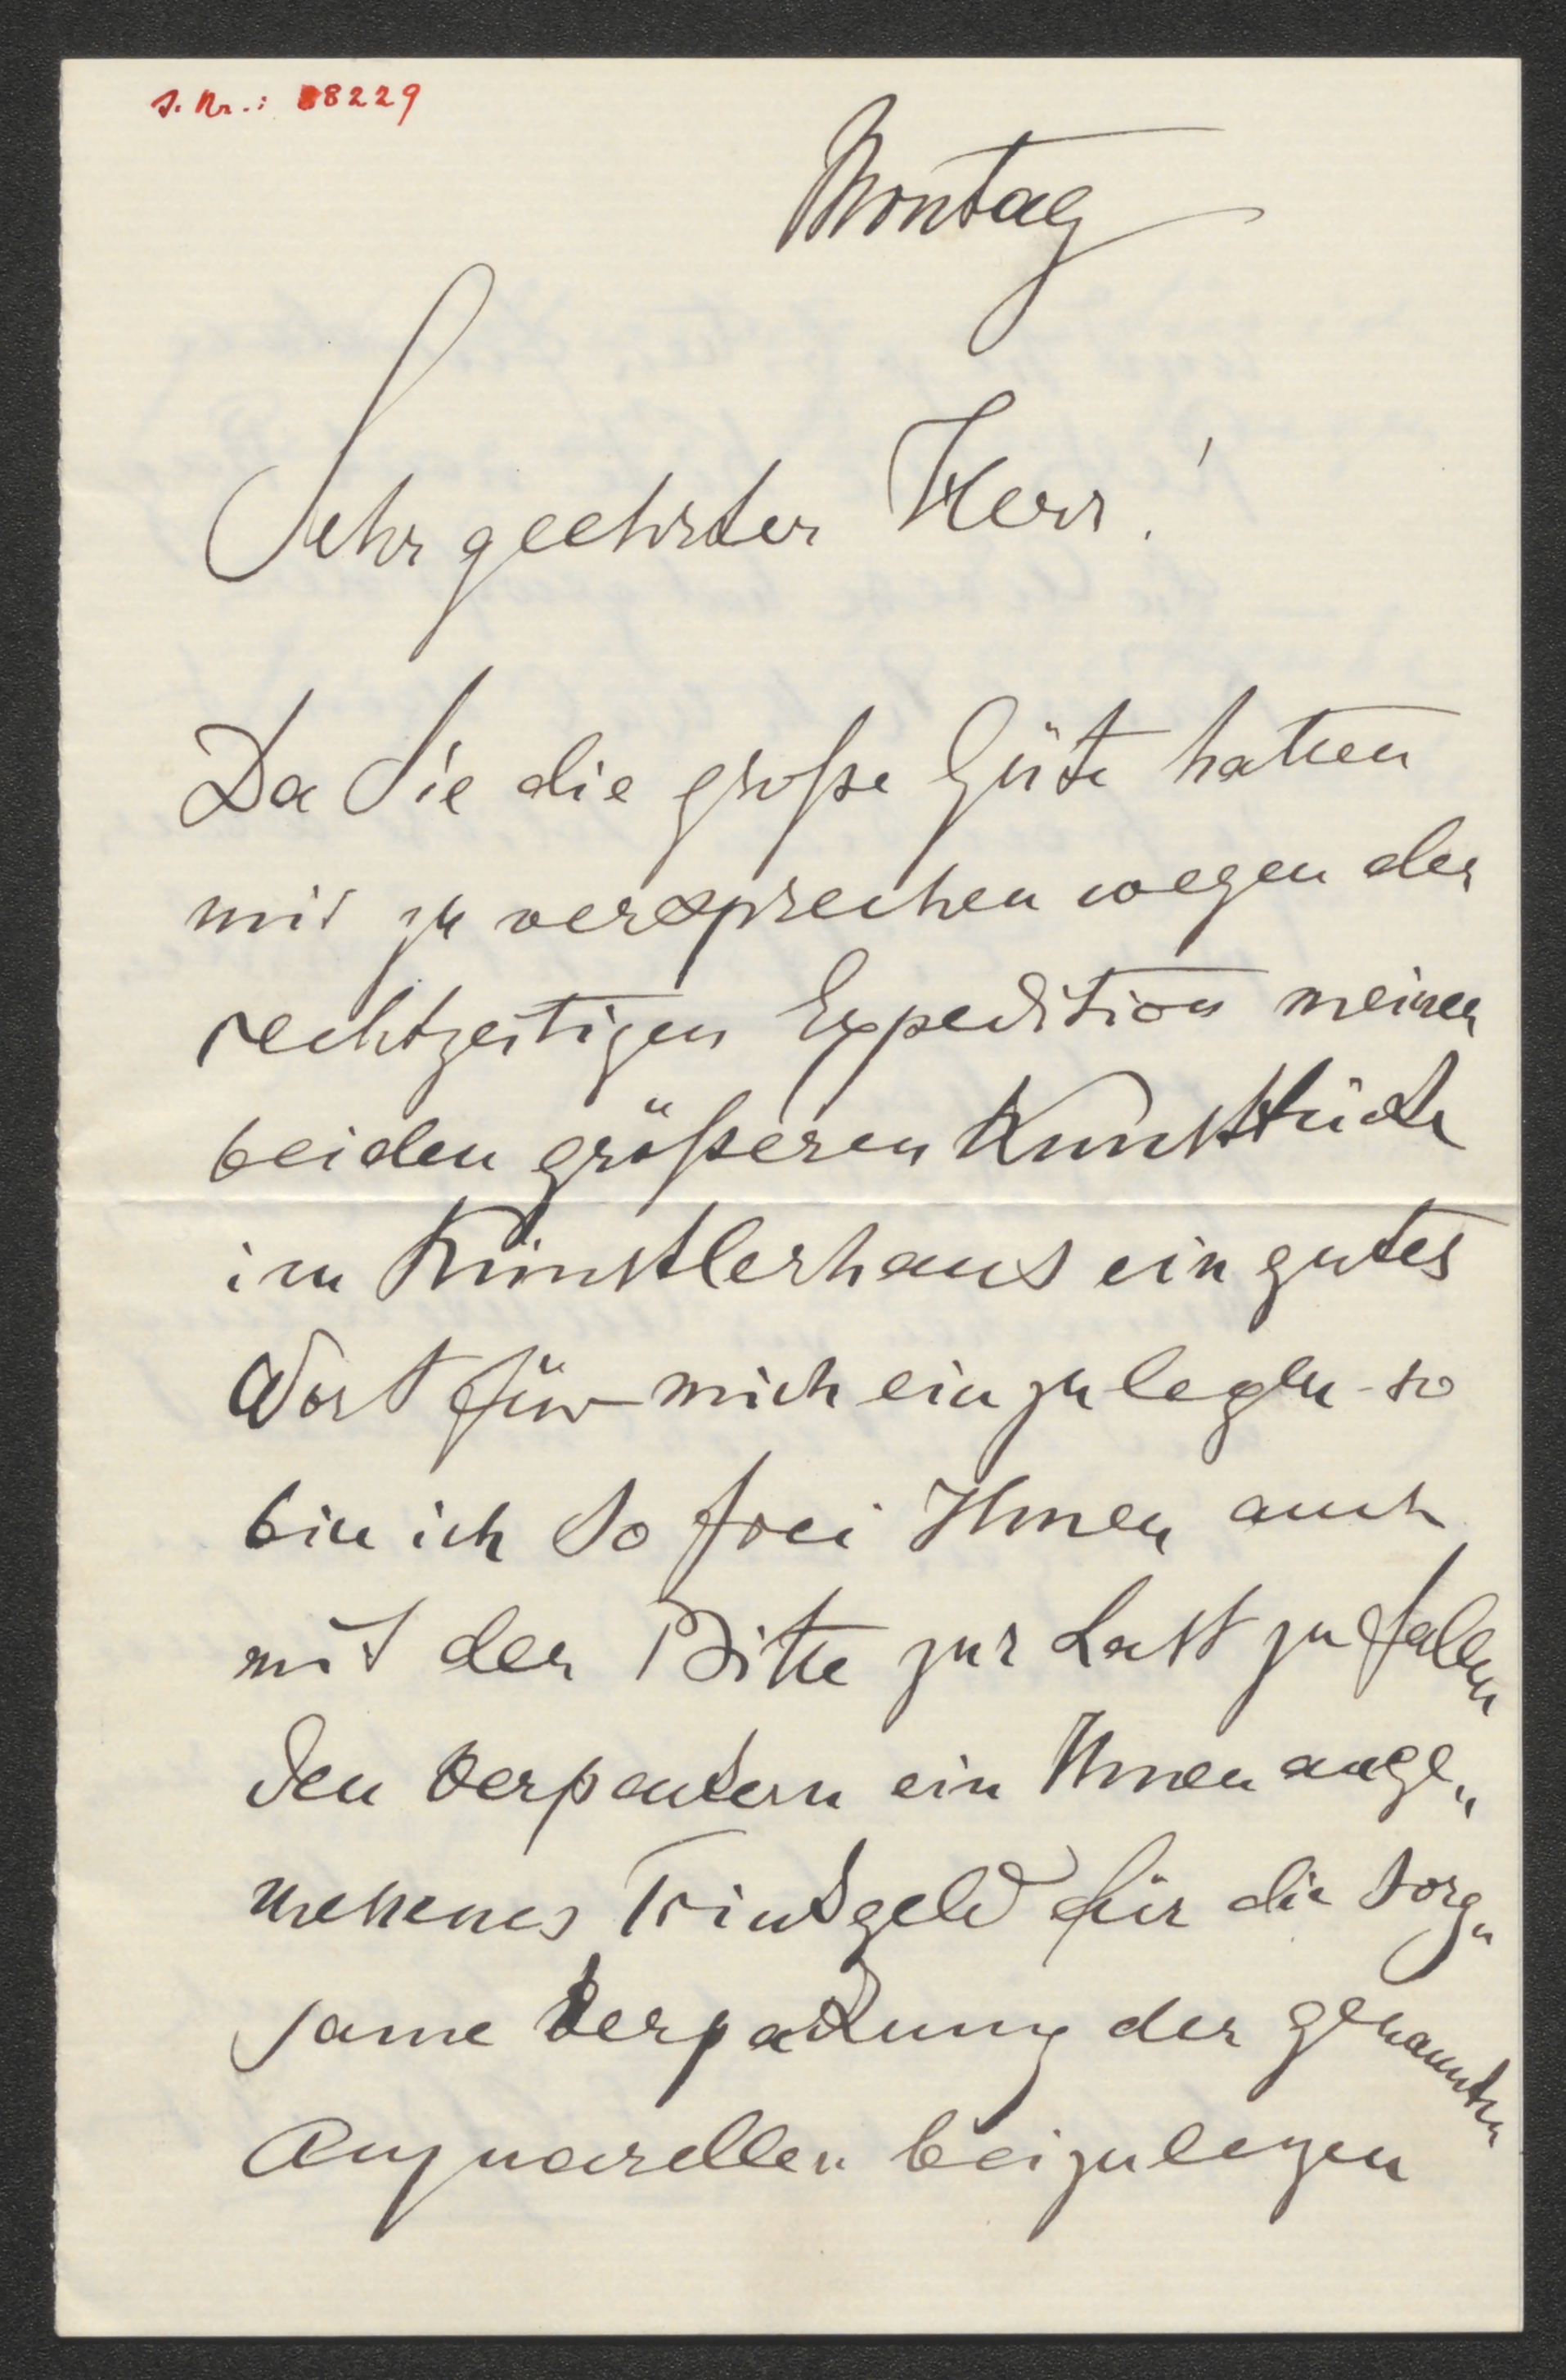 J. Nr.: 88229
Montag
Sehr geehrter Herr!
Da Sie die große Güte hatten
mir zu versprechen wegen der
rechtzeitigen Expedition meiner
beiden größeren Kunststücke
im Künstlerhaus ein gutes
Wort für mich einzulegen - so
bin ich so frei Ihnen auch
mit der Bitte zur Last zu fallen
den Verpackern ein Ihnen ange„
nehmes Trinkgeld für die sorg„
same Verpackung der genannten
Aquarellen beizulegen